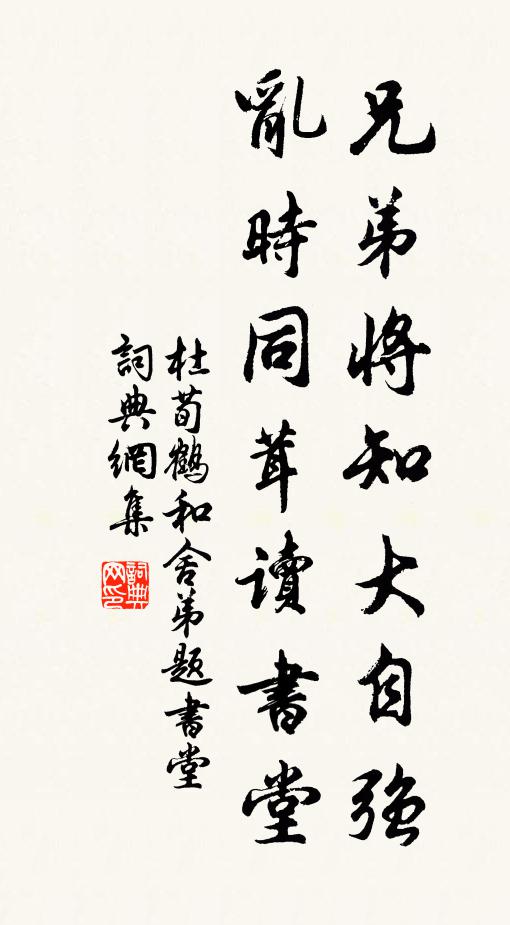 兄弟將知大自強
亂時同葺讀書堂
杜荀鶴和舍弟題書堂
詞典網集
詞典网印